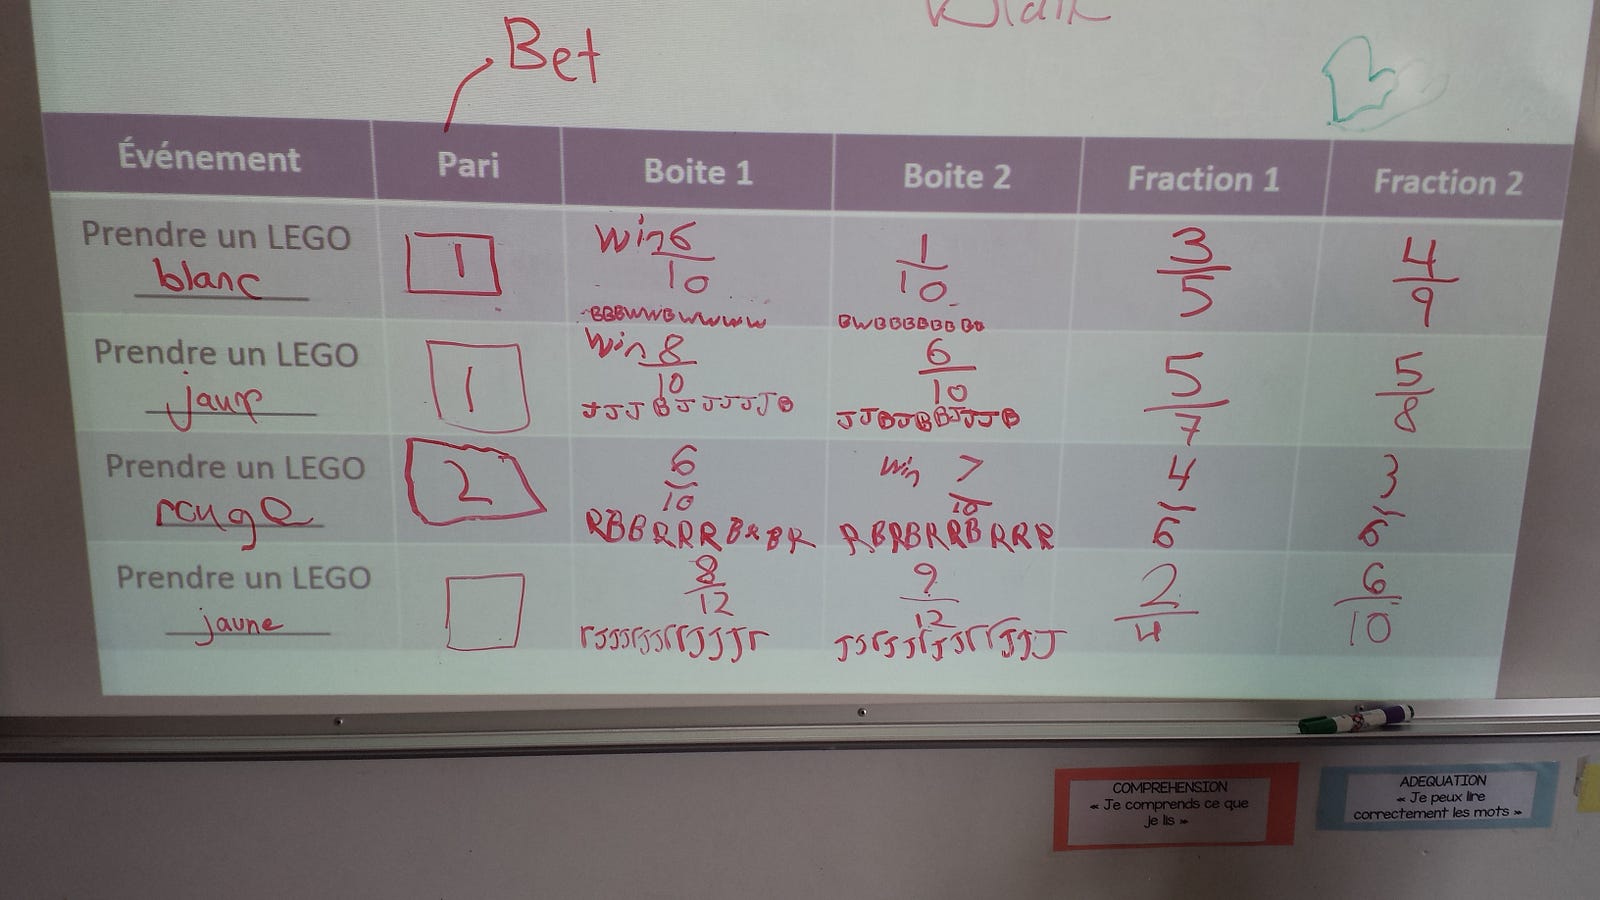 Bet
Événement Pari Boite 1 Boite 2 Fraction 1 Fraction 2
Prendre un LEGO blanc 1 Win 6/10 1/10 3/5 4/9
BBBWWBWWWW BWBBBBBBBB
Prendre un LEGO jaune 1 Win 8/10 6/10 5/7 5/8
JJJBJJJJJB JJBJBBJJJB
Prendre un LEGO rouge 2 6/10 Win 7/10 4/6 3/5
RBBRRRBRBR RBRBRRBRRR
Prendre un LEGO jaune 8/12 9/12 2/4 6/10
COMPREHENSION
« Je comprends ce que
je lis »
ADEQUATION
« Je peux lire
correctement les mots »